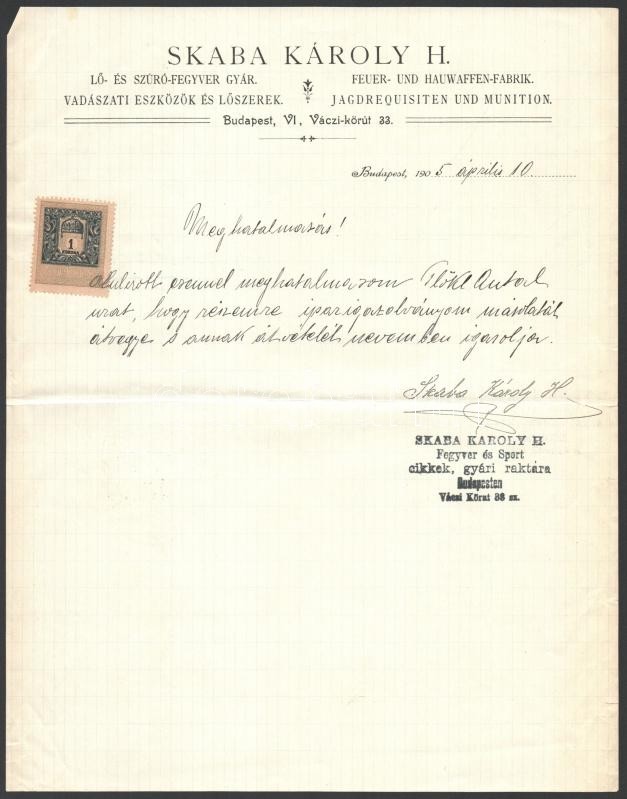 SKABA KÁROLY H.
LŐ- ÉS SZÚRÓ-FEGYVER GYÁR.
VADÁSZATI ESZKÖZÖK ÉS LŐSZEREK.
FEUER- UND HAUWAFFEN-FABRIK.
JAGDREQUISITEN UND MUNITION.
Budapest, VI, Váczi-körút 33.
Budapest, 1905 április 10.
1
Meghatalmazás!
Alulirott ezennel meghatalmazom Antal
urat, hogy részemre iparigazolványom másolatát
átvegye s annak átvételét nevemben igazolja.
Skaba Károly H.
SKABA KÁROLY H.
Fegyver és Sport
cikkek, gyári raktára
Budapesten
Váczi Körut 33 sz.